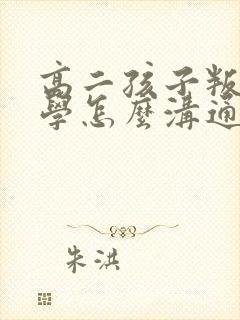 高二孩子叛
學怎麼溝通
朱洪